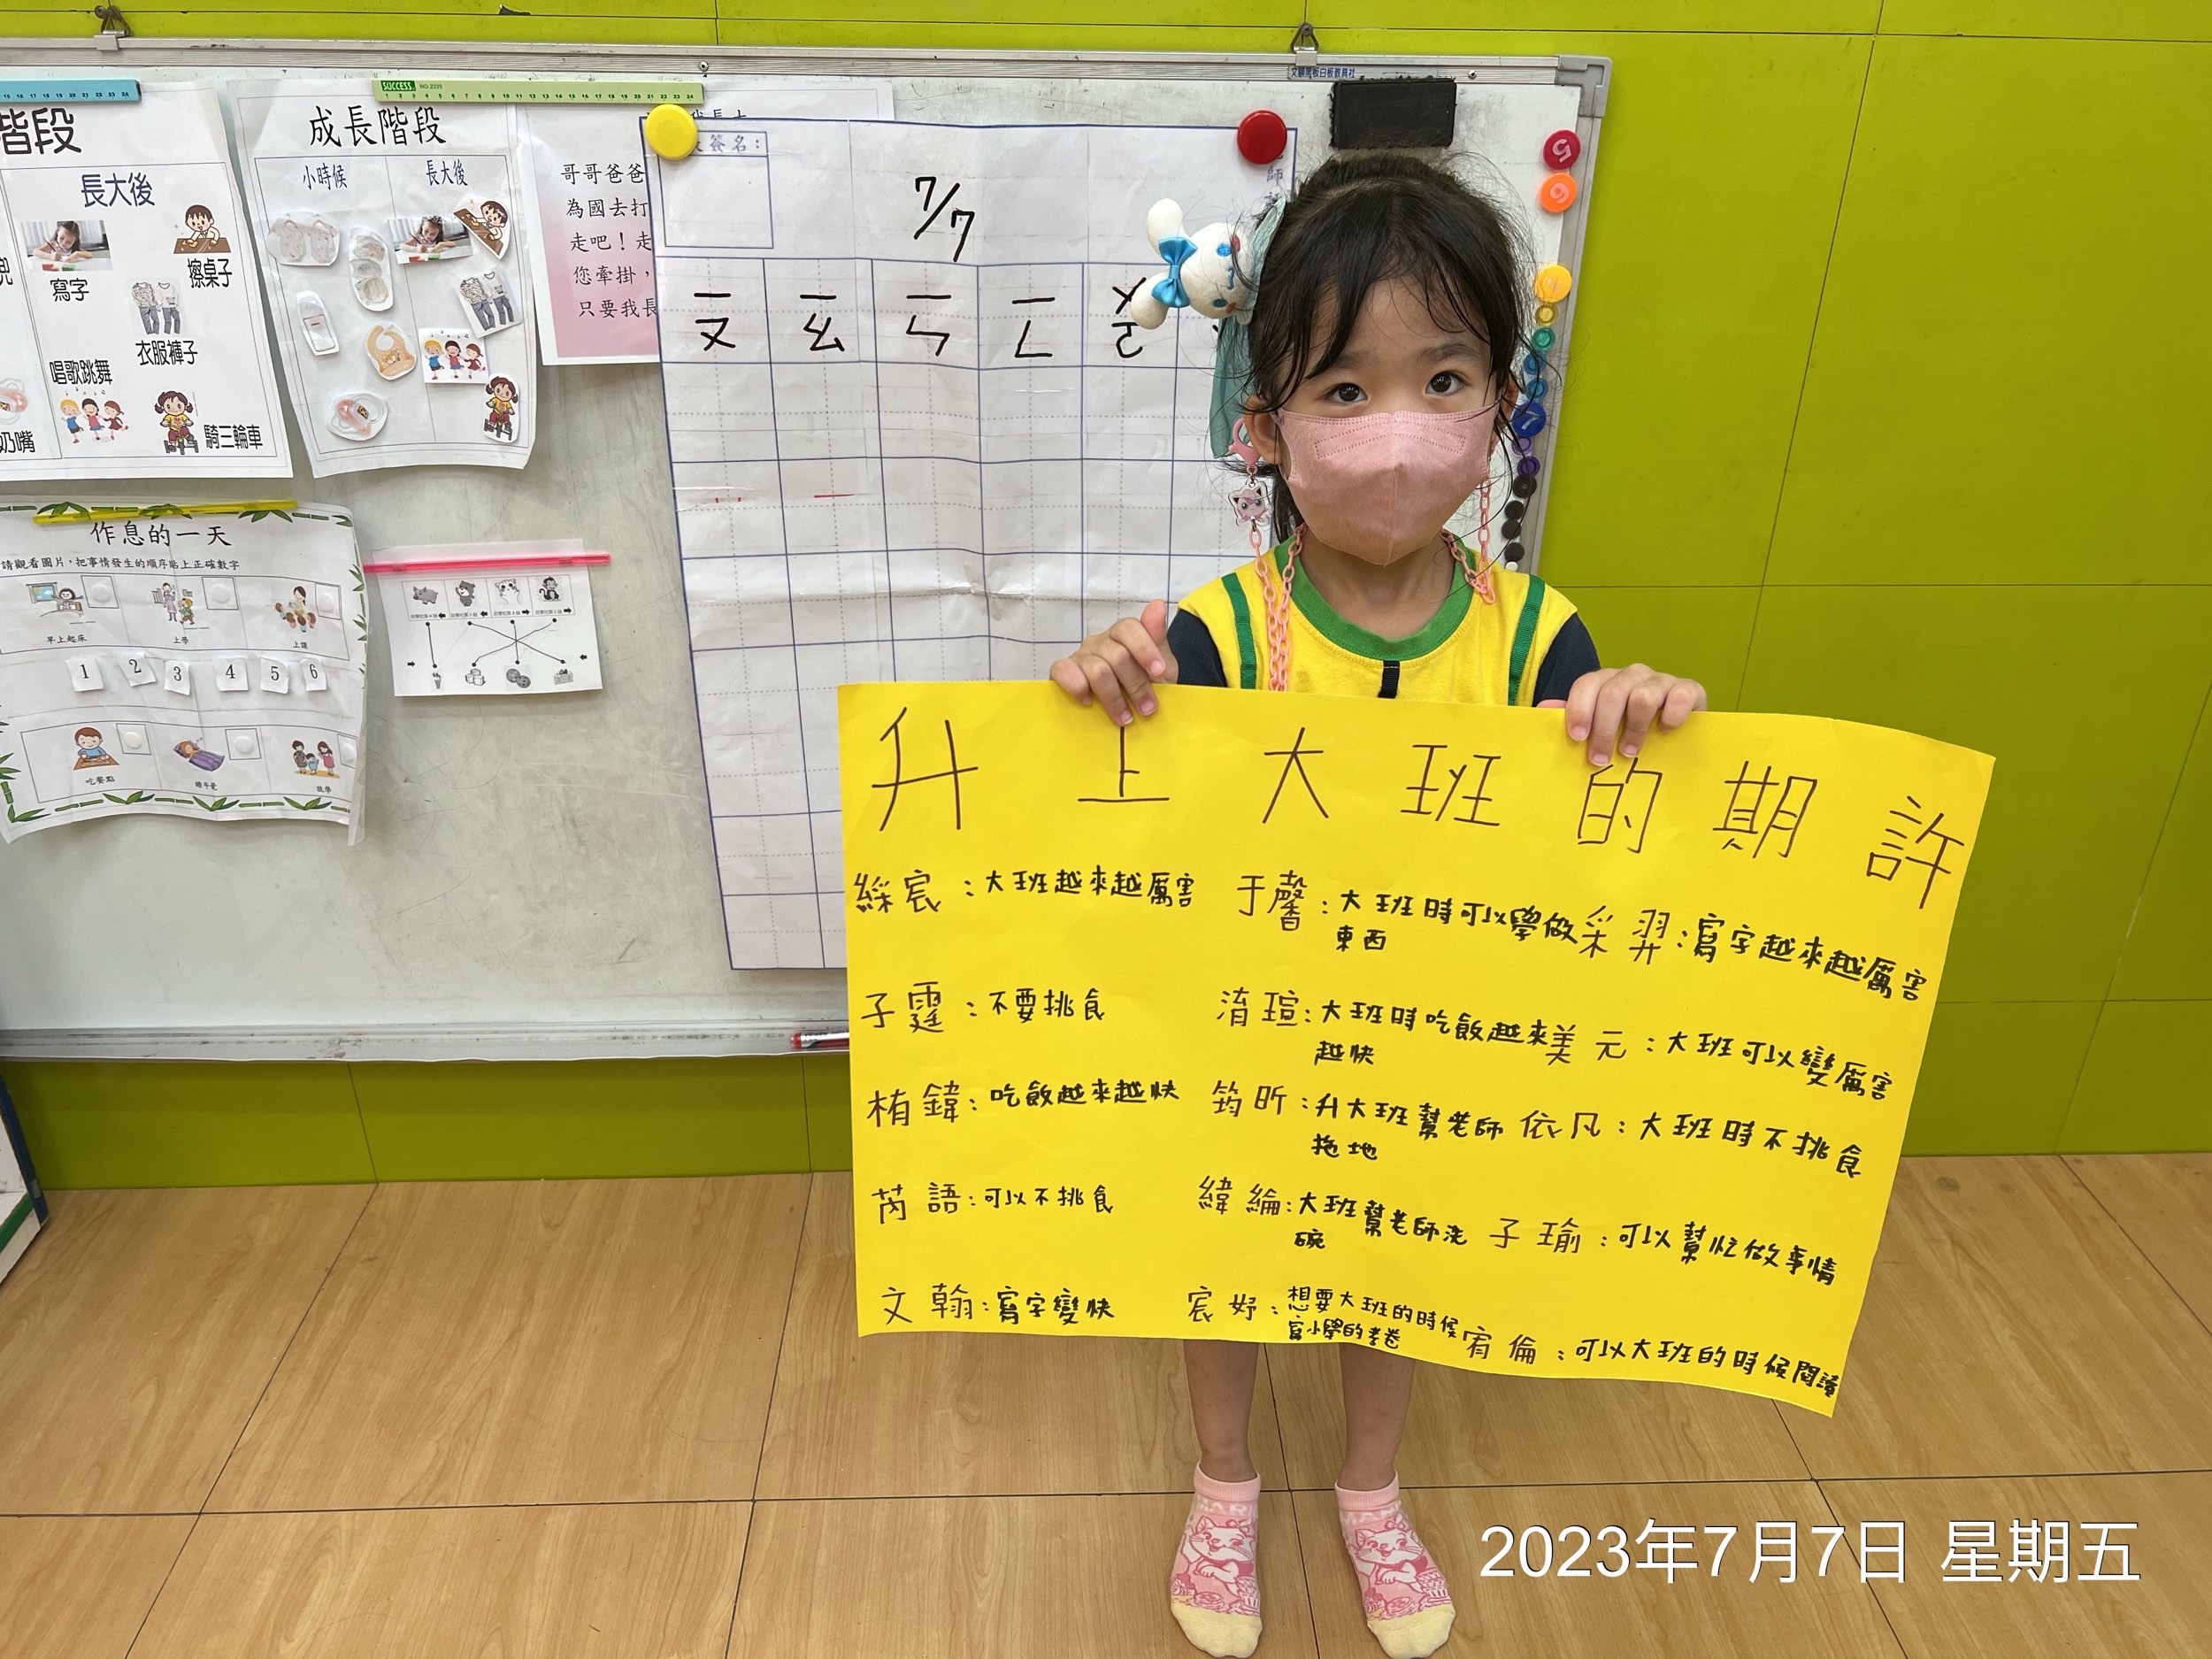 階段
長大後
寫字
擦桌子
衣服褲子
唱歌跳舞
奶嘴
騎三輪車
SUCCESS NO.2225
成長階段
小時候
長大後
哥哥爸爸
為國去打
走吧！走
您牽掛，
只要我長
簽名：
7/7
ㄧㄡ
ㄧㄠ
ㄧㄣ
ㄧㄥ
ㄨㄛ
5
6
7
作息的一天
請觀看圖片，把事情發生的順序貼上正確數字
早上起床
上學
上課
1 2 3 4 5 6
吃餐點
睡午覺
放學
升上大班的期許
綵宸：大班越來越厲害
于馨：大班時可以學做
東西
采羿：寫字越來越厲害
子霆：不要挑食
淯瑄：大班時吃飯越來
越快
美元：大班可以變厲害
栯鍏：吃飯越來越快
筠昕：升大班幫老師
拖地
依凡：大班時不挑食
芮語：可以不挑食
緯綸：大班幫老師洗
碗
子瑜：可以幫忙做事情
文翰：寫字變快
宸妤：想要大班的時候
寫小學的考卷
宥倫：可以大班的時候閱讀
2023年7月7日 星期五